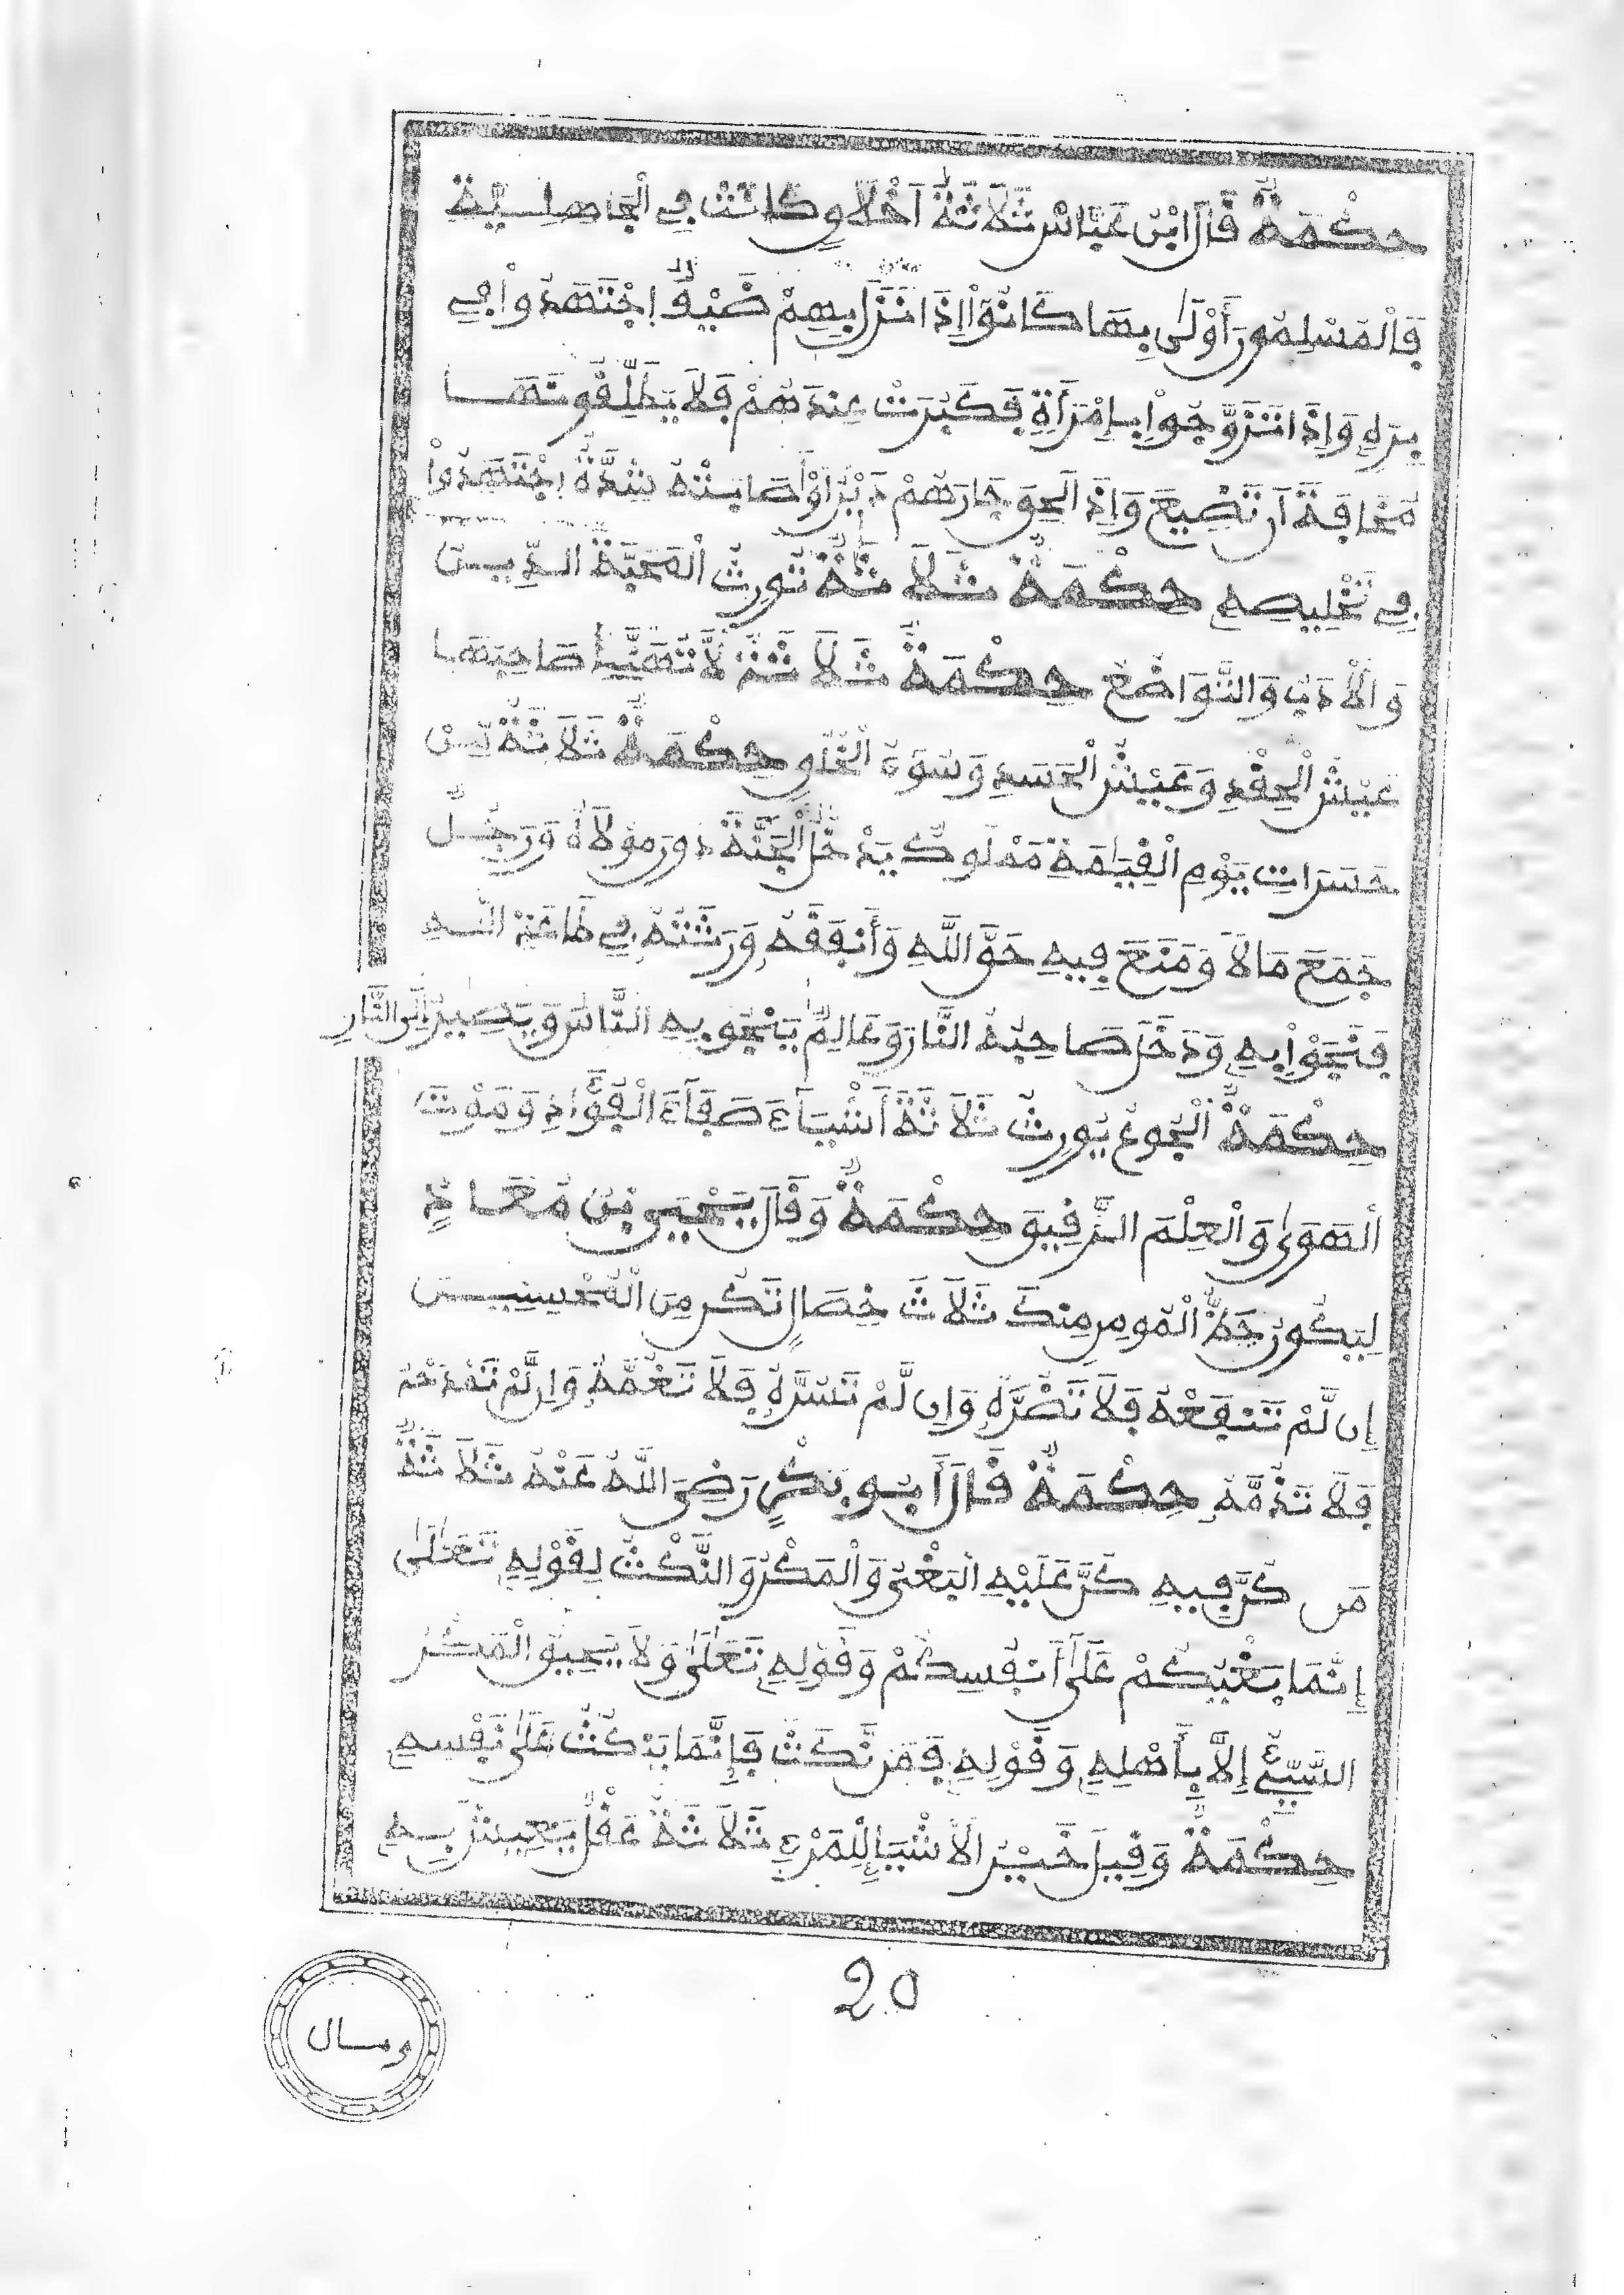 حِكْمَةٌ قَالَ ابْنُ عَبَّاسٍ ثَلَاثَةُ أَخْلَاقٍ كَانَتْ فِي الْجَاهِلِيَّةِ
فَالْمُسْلِمُونَ أَوْلَى بِهَا كَانُوا إِذَا نَزَلَ بِهِمْ ضَيْفٌ اِجْتَهَدُوا فِي
بِرِّهِ وَإِذَا تَزَوَّجُوا بِامْرَأَةٍ فَكَبُرَتْ عِنْدَهُمْ فَلَا يُطَلِّقُونَهَا
مَخَافَةَ أَن تَضِيعَ وَإِذَا لَحِقَ جَارَهُمْ دَيْنٌ أَوْ أَصَابَتْهُ شِدَّةٌ اِجْتَهَدُوا
فِي تَخْلِيصِهِ حِكْمَةٌ ثَلَاثَةٌ تُورِثُ الْمَحَبَّةَ الدِّينُ
وَالْأَدَبُ وَالتَّوَاضُعُ حِكْمَةٌ ثَلَاثَةٌ لَا تُهَنِّئُ صَاحِبَهَا
عَيْشُ الْحِقْدِ وَعَيْشُ الْحَسَدِ وَسُوءُ الْخُلُقِ حِكْمَةٌ ثَلَاثَةٌ مِنْ
حَسَرَاتِ يَوْمِ الْقِيَامَةِ مَمْلُوكٌ يَدْخُلُ الْجَنَّةَ دُونَ مَوْلَاهُ وَرَجُلٌ
جَمَعَ مَالًا وَمَنَعَ فِيهِ حَقَّ اللَّهِ وَأَنْفَقَهُ وَرَثَتُهُ فِي طَاعَةِ اللَّهِ
فَنَجَوْا بِهِ وَدَخَلَ صَاحِبُهُ النَّارَ وَعَالِمٌ يَنْجُو بِهِ النَّاسُ وَيَصِيرُ إِلَى النَّارِ
حِكْمَةٌ الْجُوعُ يُورِثُ ثَلَاثَةَ أَشْيَاءَ صَفَاءَ الْفُؤَادِ وَمَوْتَ
الْهَوَى وَالْعِلْمَ الدَّقِيقَ حِكْمَةٌ وَقَالَ يَحْيَى بْنُ مُعَاذٍ
لِيَكُونَ حَظُّ الْمُومِنِ مِنكَ ثَلَاثَ خِصَالٍ تَكُن مِنَ الْمُحْسِنِينَ
إِن لَّمْ تَنْفَعْهُ فَلَا تَضُرَّهُ وَإِن لَّمْ تَسُرَّهُ فَلَا تَغُمَّهُ وَإِن لَّمْ تَمْدَحْهُ
فَلَا تَذُمَّهُ حِكْمَةٌ قَالَ أَبُو بَكْرٍ رَضِيَ اللَّهُ عَنْهُ ثَلَاثَةٌ
مَن كُنَّ فِيهِ كُنَّ عَلَيْهِ الْبَغْيُ وَالْمَكْرُ وَالنَّكْثُ لِقَوْلِهِ تَعَالَى
إِنَّمَا بَغْيُكُمْ عَلَى أَنْفُسِكُمْ وَقَوْلِهِ تَعَالَى وَلَا يَحِيقُ الْمَكْرُ
السَّيِّئُ إِلَّا بِأَهْلِهِ وَقَوْلِهِ فَمَن نَّكَثَ فَإِنَّمَا يَنكُثُ عَلَى نَفْسِهِ
حِكْمَةٌ وَقِيلَ خَيْرُ الْأَشْيَاءِ لِلْمَرْءِ ثَلَاثَةٌ عَقْلٌ يَعِيشُ بِهِ
20